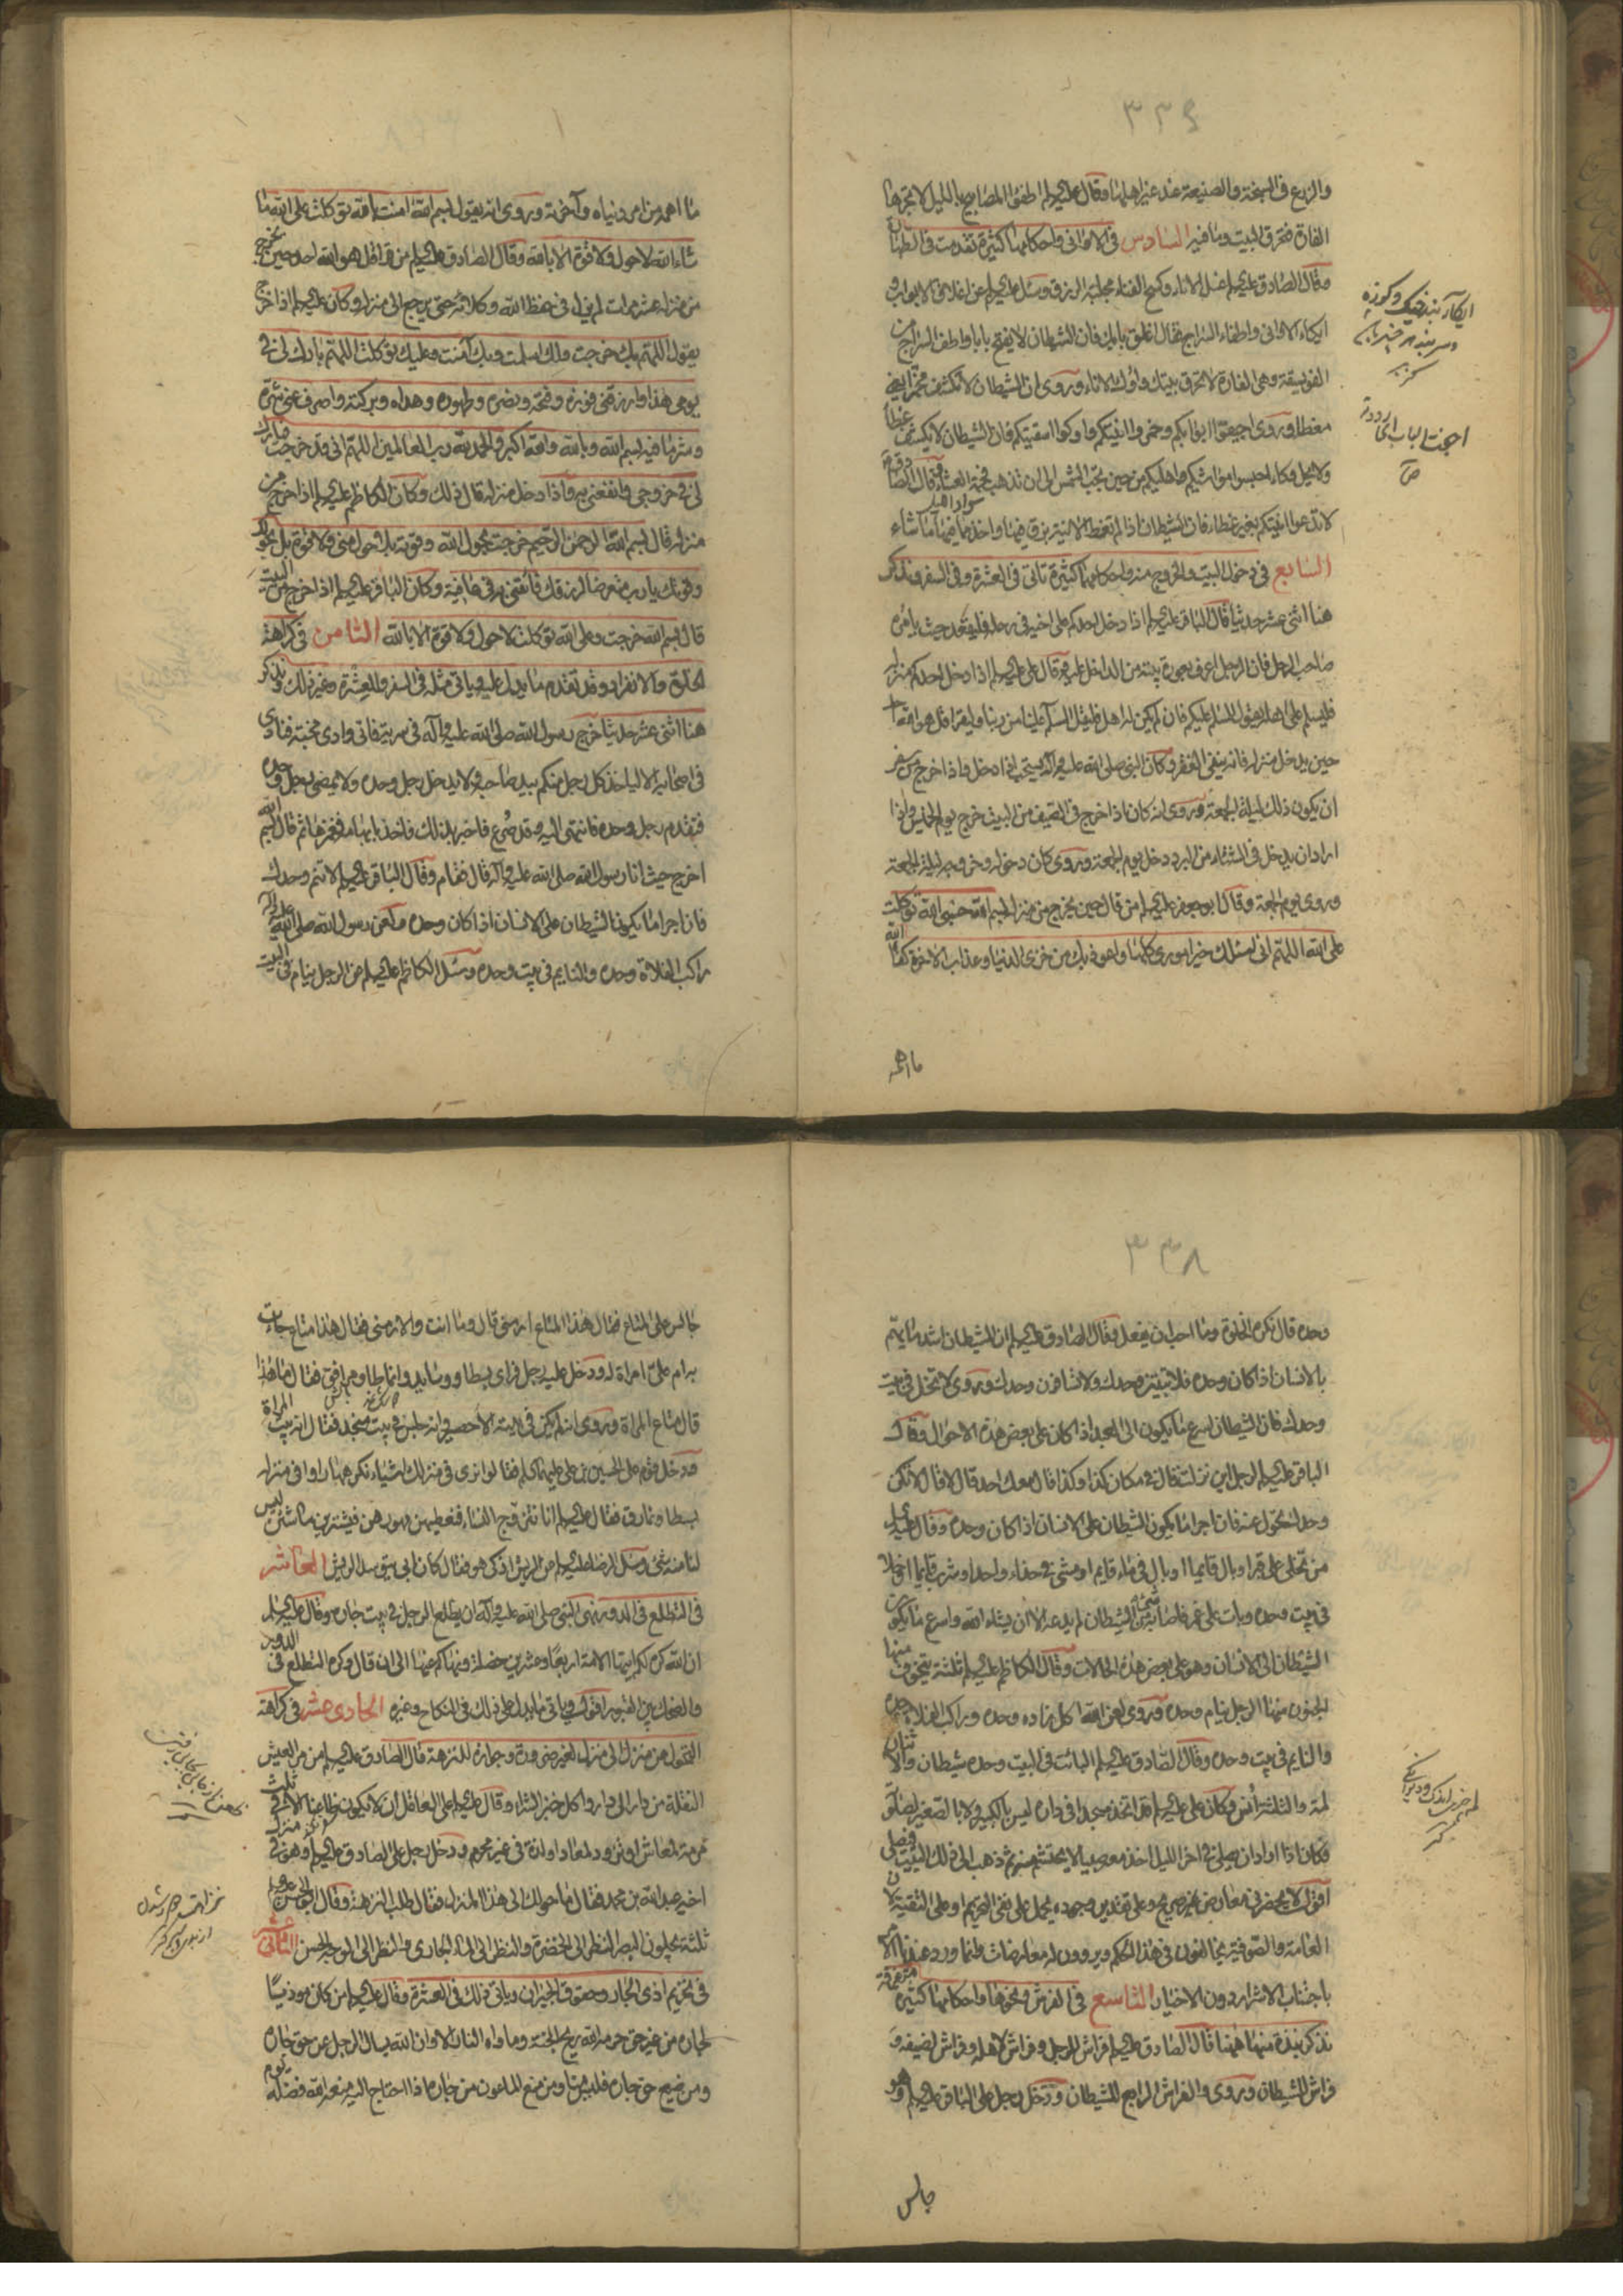 ٣٣٤
والزرع في السبخة والصنيعة عند غير اهلها وقال عليه السلام اطفئوا المصابيح بالليل لا تجرها
الفارة فتحرق البيت وما فيه السادس في الاواني واحكامها كثيرة تقدمت في الطهارة
وقال الصادق عليه السلام غسل الاناء وكسح الفناء مجلبة الرزق وسئل عليه السلام عن اغلاق الابواب و
ايكاء الاواني واطفاء السراج فقال اغلق بابك فان الشيطان لا يفتح بابا واطف السراج من
الفويسقة وهي الفارة لا تحرق بيتك واوك الاناء وروى ان الشيطان لا يكشف مخمرا يعني
مغطا وروى اجيفوا ابوابكم وخمروا آنيتكم واوكوا اسقيتكم فان الشيطان لا يكشف غطاء
ولا يحل وكاء احبسوا مواشيكم واهليكم من حين تجب الشمس الى ان تذهب فحمة العشاء وقال الصادق
لا تدعوا آنيتكم بغير غطاء فان الشيطان اذا لم تغط الانية بزق فيها واخذ مما فيها ما شاء
السابع في دخول البيت والخروج منه واحكامهما كثيرة تاتى في العشرة وفي السفر ونذكر
هنا اثنى عشر حديثا قال الباقر عليه السلام اذا دخل احدكم على اخيه في رحله فليقعد حيث يامره
صاحب الرحل فان الرجل اعرف بعورة بيته من الداخل عليه وقال على عليه السلام اذا دخل احدكم منزله
فليسلم على اهله يقول السلام عليكم فان لم يكن له اهل فليقل السلام علينا من ربنا وليقرا قل هو الله احد
حين يدخل منزله فانه ينفى الفقر وكان النبى صلى الله عليه وآله يستحب اذا دخل واذا خرج من سفر
ان يكون ذلك ليلة الجمعة وروى انه كان اذا خرج في الصيف من البيت خرج يوم الخميس واذا
اراد ان يدخل في الشتاء من البرد دخل يوم الجمعة وروى كان دخوله وخروجه ليلة الجمعة
وروى يوم الجمعة وقال ابو جعفر عليه السلام من قال حين يخرج من منزله بسم الله حسبى الله توكلت
على الله اللهم انى اسئلك خير امورى كلها واعوذ بك من خزى الدنيا وعذاب الاخرة كفاه الله
ما اهمه
ما اهمه من امر دنياه وآخرته وروى انه يقول بسم الله امنت بالله توكلت على الله ما
شاء الله لا حول ولا قوة الا بالله وقال الصادق عليه السلام من قرا قل هو الله احد حين يخرج
من منزله عشر مرات لم يزل في حفظ الله وكلائته حتى يرجع الى منزله وكان عليه السلام اذا خرج
يقول اللهم بك خرجت ولك اسلمت وبك آمنت وعليك توكلت اللهم بارك لى في
يومى هذا وارزقنى فوزه وفتحه ونصره وطهوره وهداه وبركته واصرف عنى شره
وشر ما فيه بسم الله وبالله والله اكبر والحمد لله رب العالمين اللهم انى قد خرجت فبارك
لى في خروجى وانفعنى به واذا دخل منزله قال ذلك وكان الكاظم عليه السلام اذا خرج من
منزله قال بسم الله الرحمن الرحيم خرجت بحول الله وقوته بلا حول منى ولا قوة بل بحولك
وقوتك يا رب متعرضا لرزقك فائتنى به في عافية وكان الباقر عليه السلام اذا خرج من البيت
قال بسم الله خرجت وعلى الله توكلت لا حول ولا قوة الا بالله الثامن في كراهة
الخلوة والانفراد وقد تقدم ما يدل عليه وياتى مثله في السفر والعشرة وغير ذلك ونذكر
هنا اثنى عشر حديثا خرج رسول الله صلى الله عليه وآله في سرية فاتى وادى مجنة فنادى
في اصحابه الا لياخذ كل رجل منكم بيد صاحبه ولا يدخل رجل وحده ولا يمضى رجل وحده
فتقدم رجل وحده فانتهى اليه وقد صرع فاخبر بذلك فاخذ بابهامه فغمزها ثم قال بسم الله
اخرج حيث انا رسول الله صلى الله عليه وآله قال فقام وقال الباقر عليه السلام لا تنم وحدك
فان اجرا ما يكون الشيطان على الانسان اذا كان وحده ولعن رسول الله صلى الله عليه وآله
راكب الفلاة وحده والنايم في بيت وحده وسئل الكاظم عليه السلام عن الرجل ينام في البيت
٣٣٨
وحده قال تكره الخلوة وما احب ان يفعل وقال الصادق عليه السلام ان الشيطان اشد ما يهم
بالانسان اذا كان وحده فلا تبيتن وحدك ولا تسافرن وحدك وروى لا تخل في بيت
وحدك فان الشيطان اسرع ما يكون الى العبد اذا كان على بعض هذه الاحوال وقال
الباقر عليه السلام لرجل اين نزلت قال في مكان كذا وكذا قال معك احد قال لا قال لا تكن
وحدك تحول عنه فان اجرا ما يكون الشيطان على الانسان اذا كان وحده وقال عليه السلام
من تخلى على قبر او بال قايما او بال في ماء قايم او مشى في حذاء واحد او شرب قايما او خلا
في بيت وحده وبات على غمر فاصابه شئ من الشيطان لم يدعه الا ان يشاء الله واسرع ما يكون
الشيطان الى الانسان وهو على بعض هذه الحالات وقال الكاظم عليه السلام ثلثة يتخوف منها
الجنون منها الرجل ينام وحده وروى لعن الله اكل زاده وحده وراكب الفلاة وحده
والنايم في بيت وحده وقال الصادق عليه السلام البائت في البيت وحده شيطان والاثنان
لمة والثلثة انس وكان على عليه السلام قد اتخذ مسجدا في داره ليس بالكبير ولا بالصغير لصلوته
فكان اذا اراد ان يصلى في اخر الليل اخذ معه صبيا لا يحتشم منه ثم ذهب الى ذلك البيت فصلى
اقول لا يحضرنى معارض غير صريح وعلى تقدير وجوده يحمل على نفى التحريم او على التقية لان
العامة والصوفية يخالفون في هذا الحكم ويروون له معارضات وانما ورد عندنا الامر
باجتناب الاشرار دون الاخيار التاسع في الفرش ونحوها واحكامها كثيرة متفرقة
نذكر نبذة منها هنا قال الصادق عليه السلام فراش للرجل وفراش لاهله وفراش لضيفه و
فراش للشيطان وروى والفراش الرابع للشيطان ودخل رجل على الباقر عليه السلام وهو
جالس
جالس على متاع فقال هذا المتاع ارمنى قال وما انت والارمنى فقال هذا متاع جاءت
به ام على امراة له ودخل عليه رجل فراى بسطا ووسايد وانماطا ومرافق فقال ما هذا
قال متاع المراة وروى انه لم يكن في بيته الا حصير وانه جلس في بيت منجد فقال انه بيت المراة
ودخل قوم على الحسين بن على عليهما السلام فقالوا نرى في منزلك اشياء نكرهها راوا في منزله
بسطا ونمارق فقال عليه السلام انا نتزوج النساء فنعطيهن مهورهن فيشترين ما شئن ليس
لنا منه شئ وسئل الرضا عليه السلام عن الريش اذكى هو فقال كان ابى يتوسد الريش العاشر
في التطلع في الدور نهى النبى صلى الله عليه وآله ان يطلع الرجل في بيت جاره وقال عليه السلام
ان الله كره لكم ايتها الامة اربعا وعشرين خصلة ونهاكم عنها الى ان قال وكره التطلع في الدور
والضحك بين القبور اقول وياتى ما يدل على ذلك في النكاح وغيره الحادى عشر في كراهة
التحول من منزل الى منزل لغير ضرورة وجوازه للنزهة قال الصادق عليه السلام من مر العيش
النقلة من دار الى دار واكل خبز الشراء وقال عليه السلام على العاقل ان لا يكون ظاعنا الا في ثلث
مرمة لمعاش او تزود لمعاد او لذة في غير محرم ودخل رجل على الصادق عليه السلام وهو في منزل
اخيه عبد الله بن محمد فقال ما حولك الى هذا المنزل فقال طلب النزهة وقال ابو الحسن عليه السلام
ثلثة يجلون البصر النظر الى الخضرة والنظر الى الماء الجارى والنظر الى الوجه الحسن الثانى عشر
في تحريم اذى الجار وحقوق الجيران وياتى ذلك في العشرة وقال عليه السلام من كان موذيا
لجاره من غير حق حرمه الله ريح الجنة وماواه النار الا وان الله يسال الرجل عن حق جاره
ومن ضيع حق جاره فليس منا ومن منع الماعون من جاره اذا احتاج اليه منعه الله فضله يوم